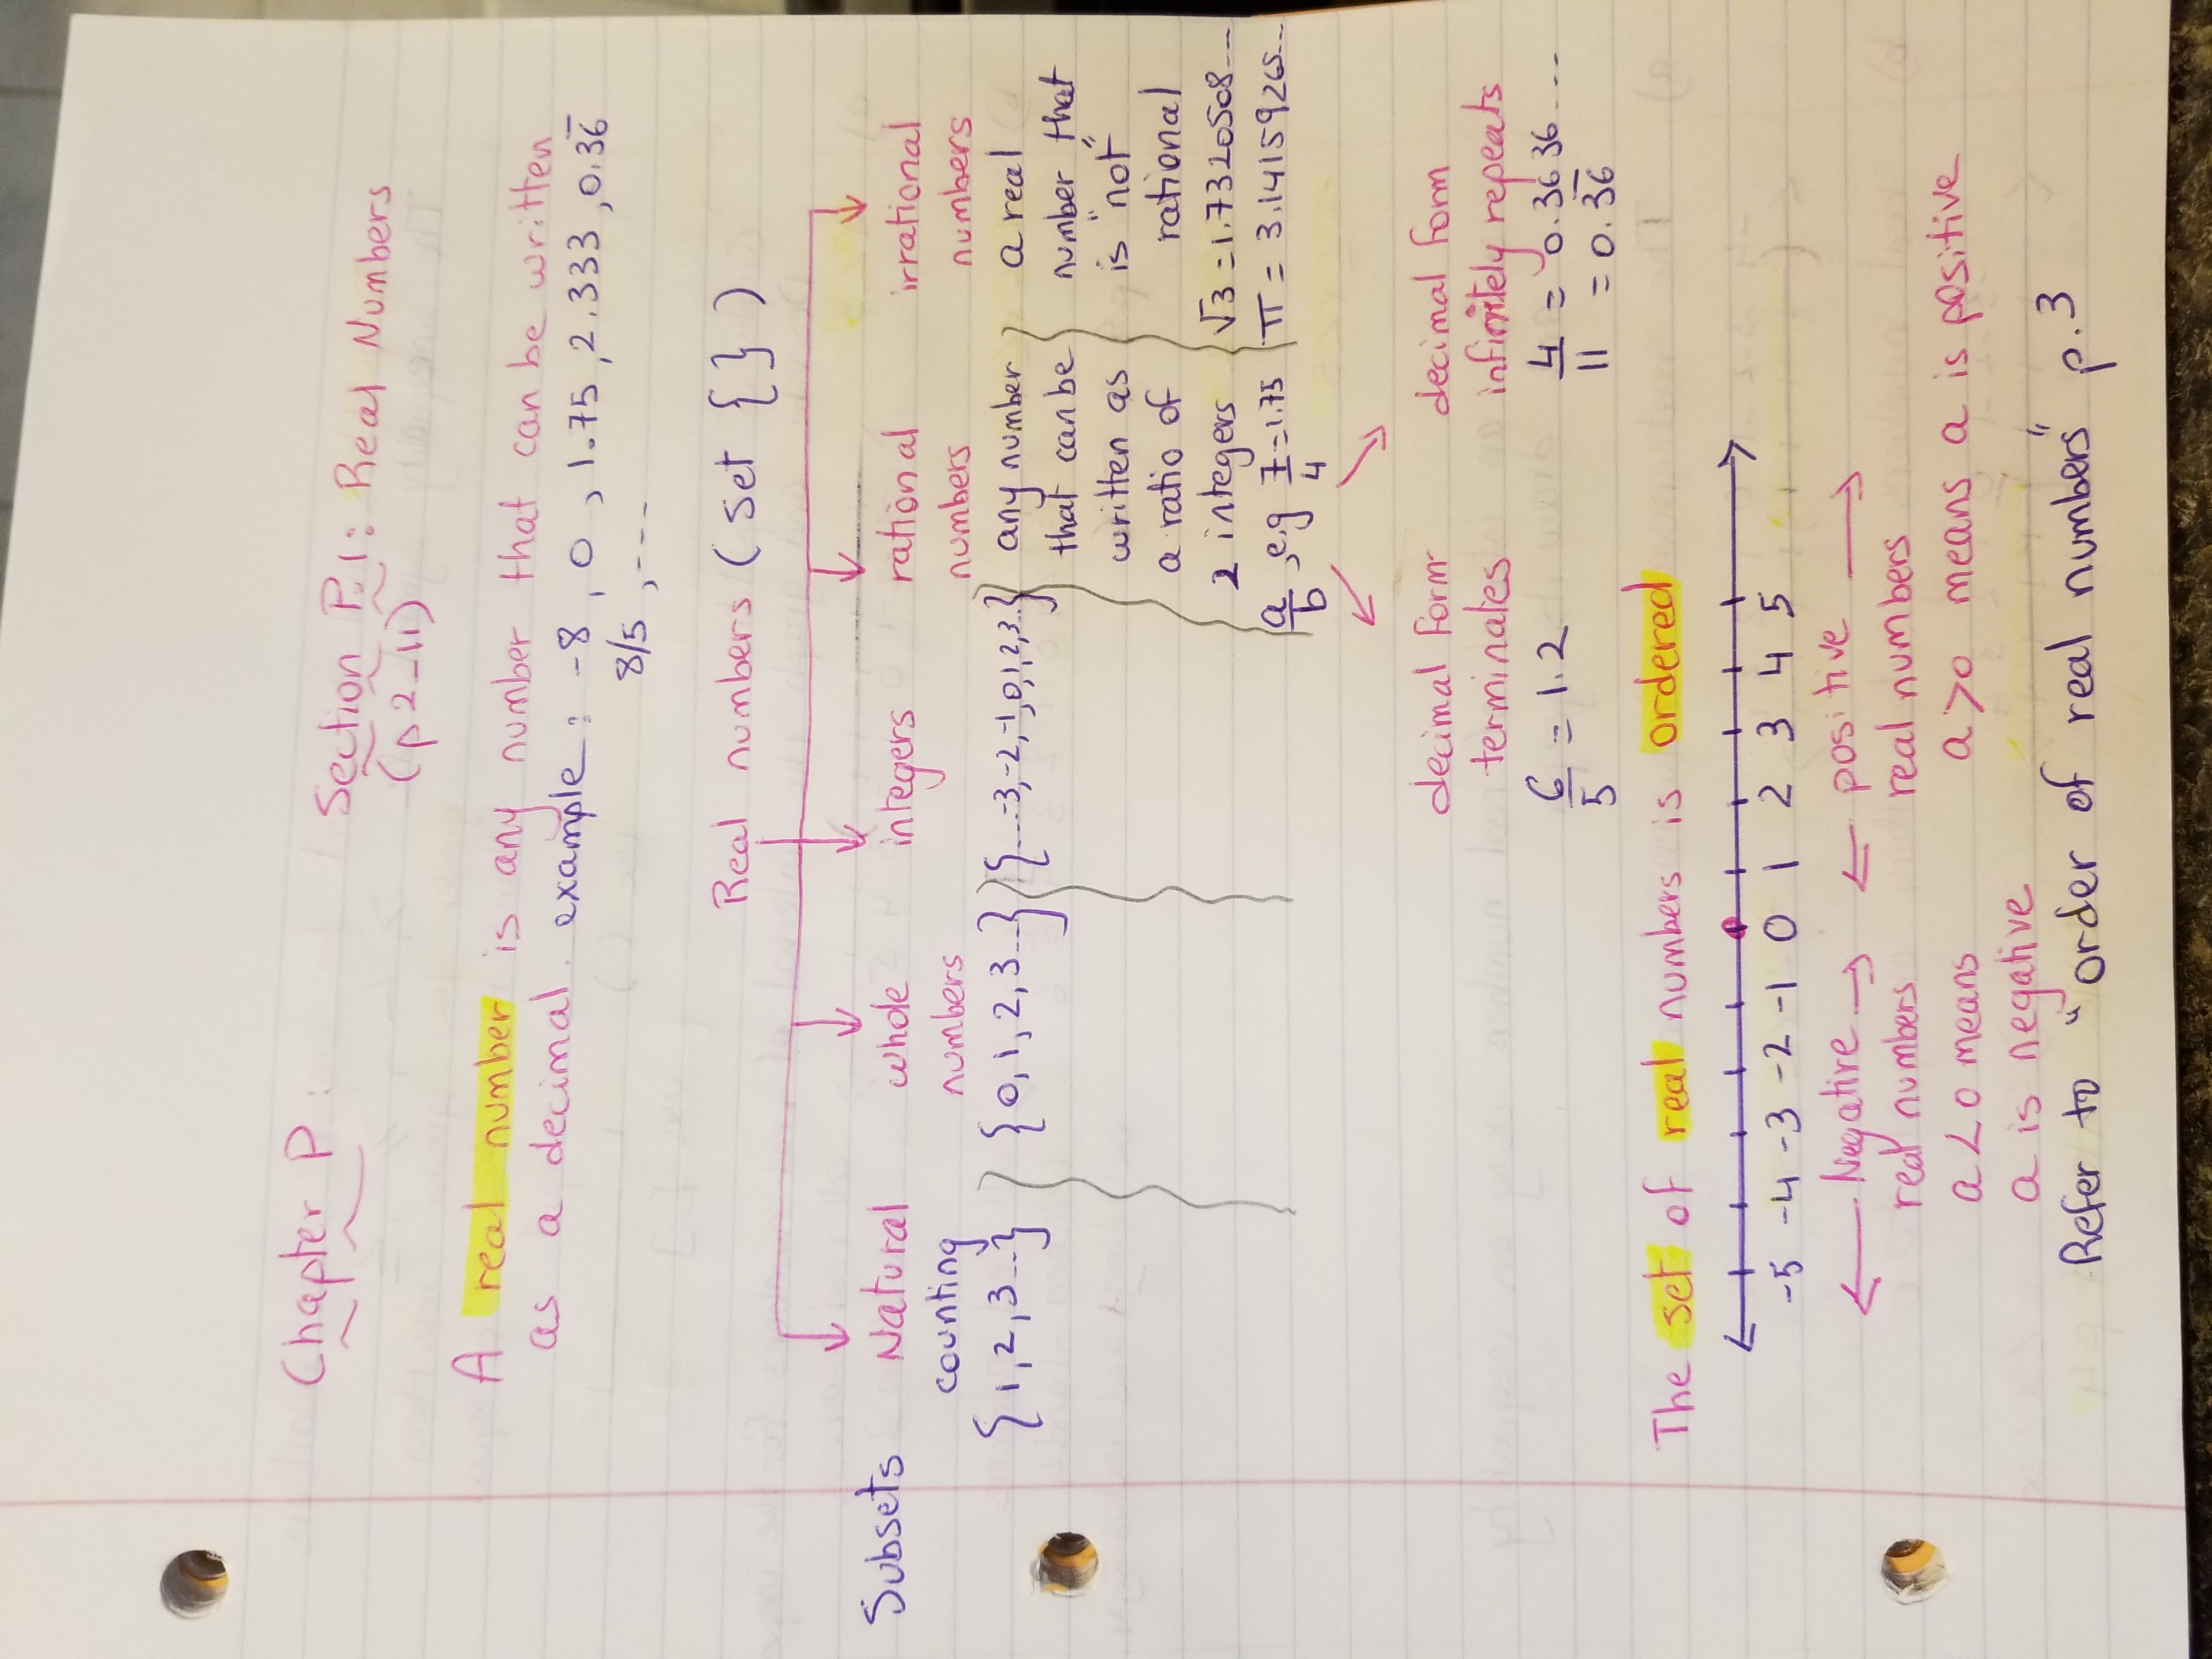 Chapter P: Section P.1: Real Numbers
(p 2-11)
A real number is any number that can be written
as a decimal. example: -8, 0, 1.75, 2.333, 0.3̅6̅
8/5, ---
Real numbers (set { })
Subsets Natural whole integers rational irrational
counting numbers numbers numbers
{1, 2, 3...} {0, 1, 2, 3...} {...-3,-2,-1,0,1,2,3..} any number a real
that can be number that
written as is "not"
a ratio of rational
2 integers √3 = 1.7320508---
a/b, e.g 7/4 = 1.75 π = 3.1415926...
decimal form decimal form
terminates infinitely repeats
6/5 = 1.2 4/11 = 0.3636...
= 0.3̅6̅
The set of real numbers is ordered
-5 -4 -3 -2 -1 0 1 2 3 4 5
← Negative → ← positive →
real numbers real numbers
a < 0 means a > 0 means a is positive
a is negative
Refer to "order of real numbers" p.3